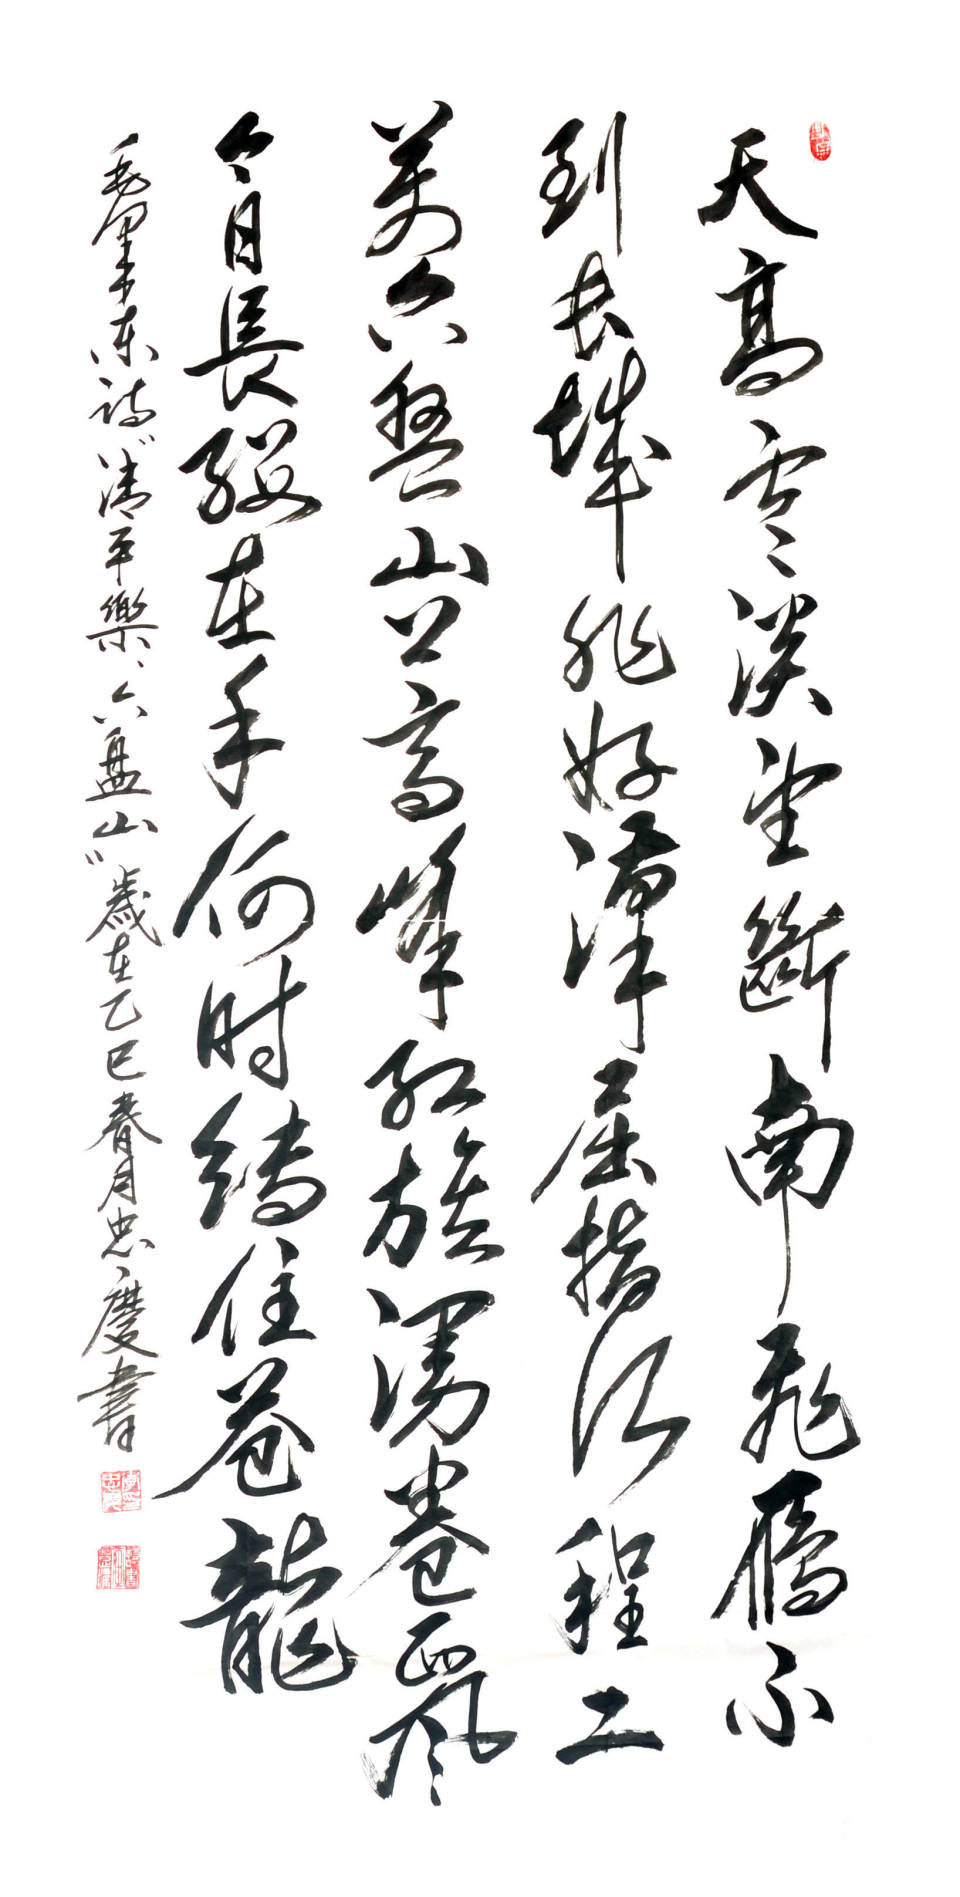 天高雲淡望斷南飛雁不
到长城非好漢屈指行程二
萬六盤山上高峰红旗漫卷西風
今日長缨在手何时缚住苍龍
毛澤东詩"清平樂、六盘山"歲在乙巳春月忠慶書